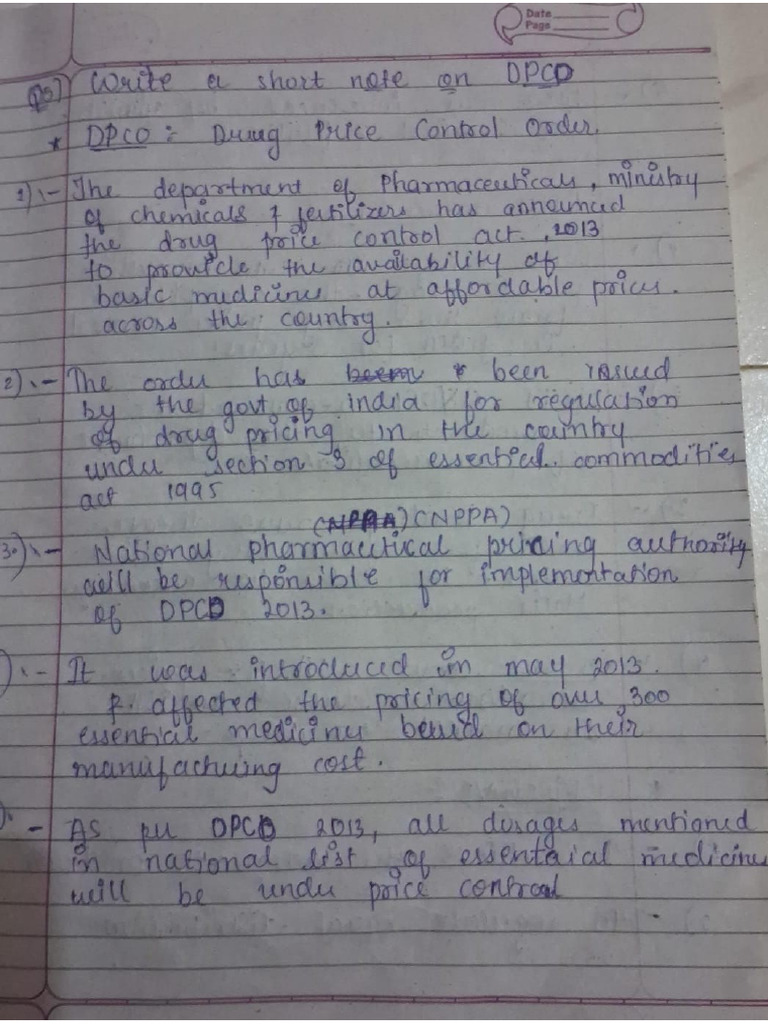 Date
Page
Q5) Write a short note on DPCO
* DPCO : Drug Price Control Order.
1) :- The department of Pharmaceuticals, ministry
of chemicals & fertilizers has announced
the drug price control act. 2013
to provide the availability of
basic medicines at affordable prices.
across the country.
2) :- The order has been been issued
by the govt. of india for regulation
of drug pricing in the country
under section 3 of essential commodities
act 1995
(NPPA) (NPPA)
3.) :- National pharmaceutical pricing authority
will be responsible for implementation
of DPCO 2013.
) :- It was introduced in may 2013.
& affected the pricing of over 300
essential medicines based on their
manufacturing cost.
) - As per DPCO 2013, all dosages mentioned
in national list of essentaial medicine
will be under price control